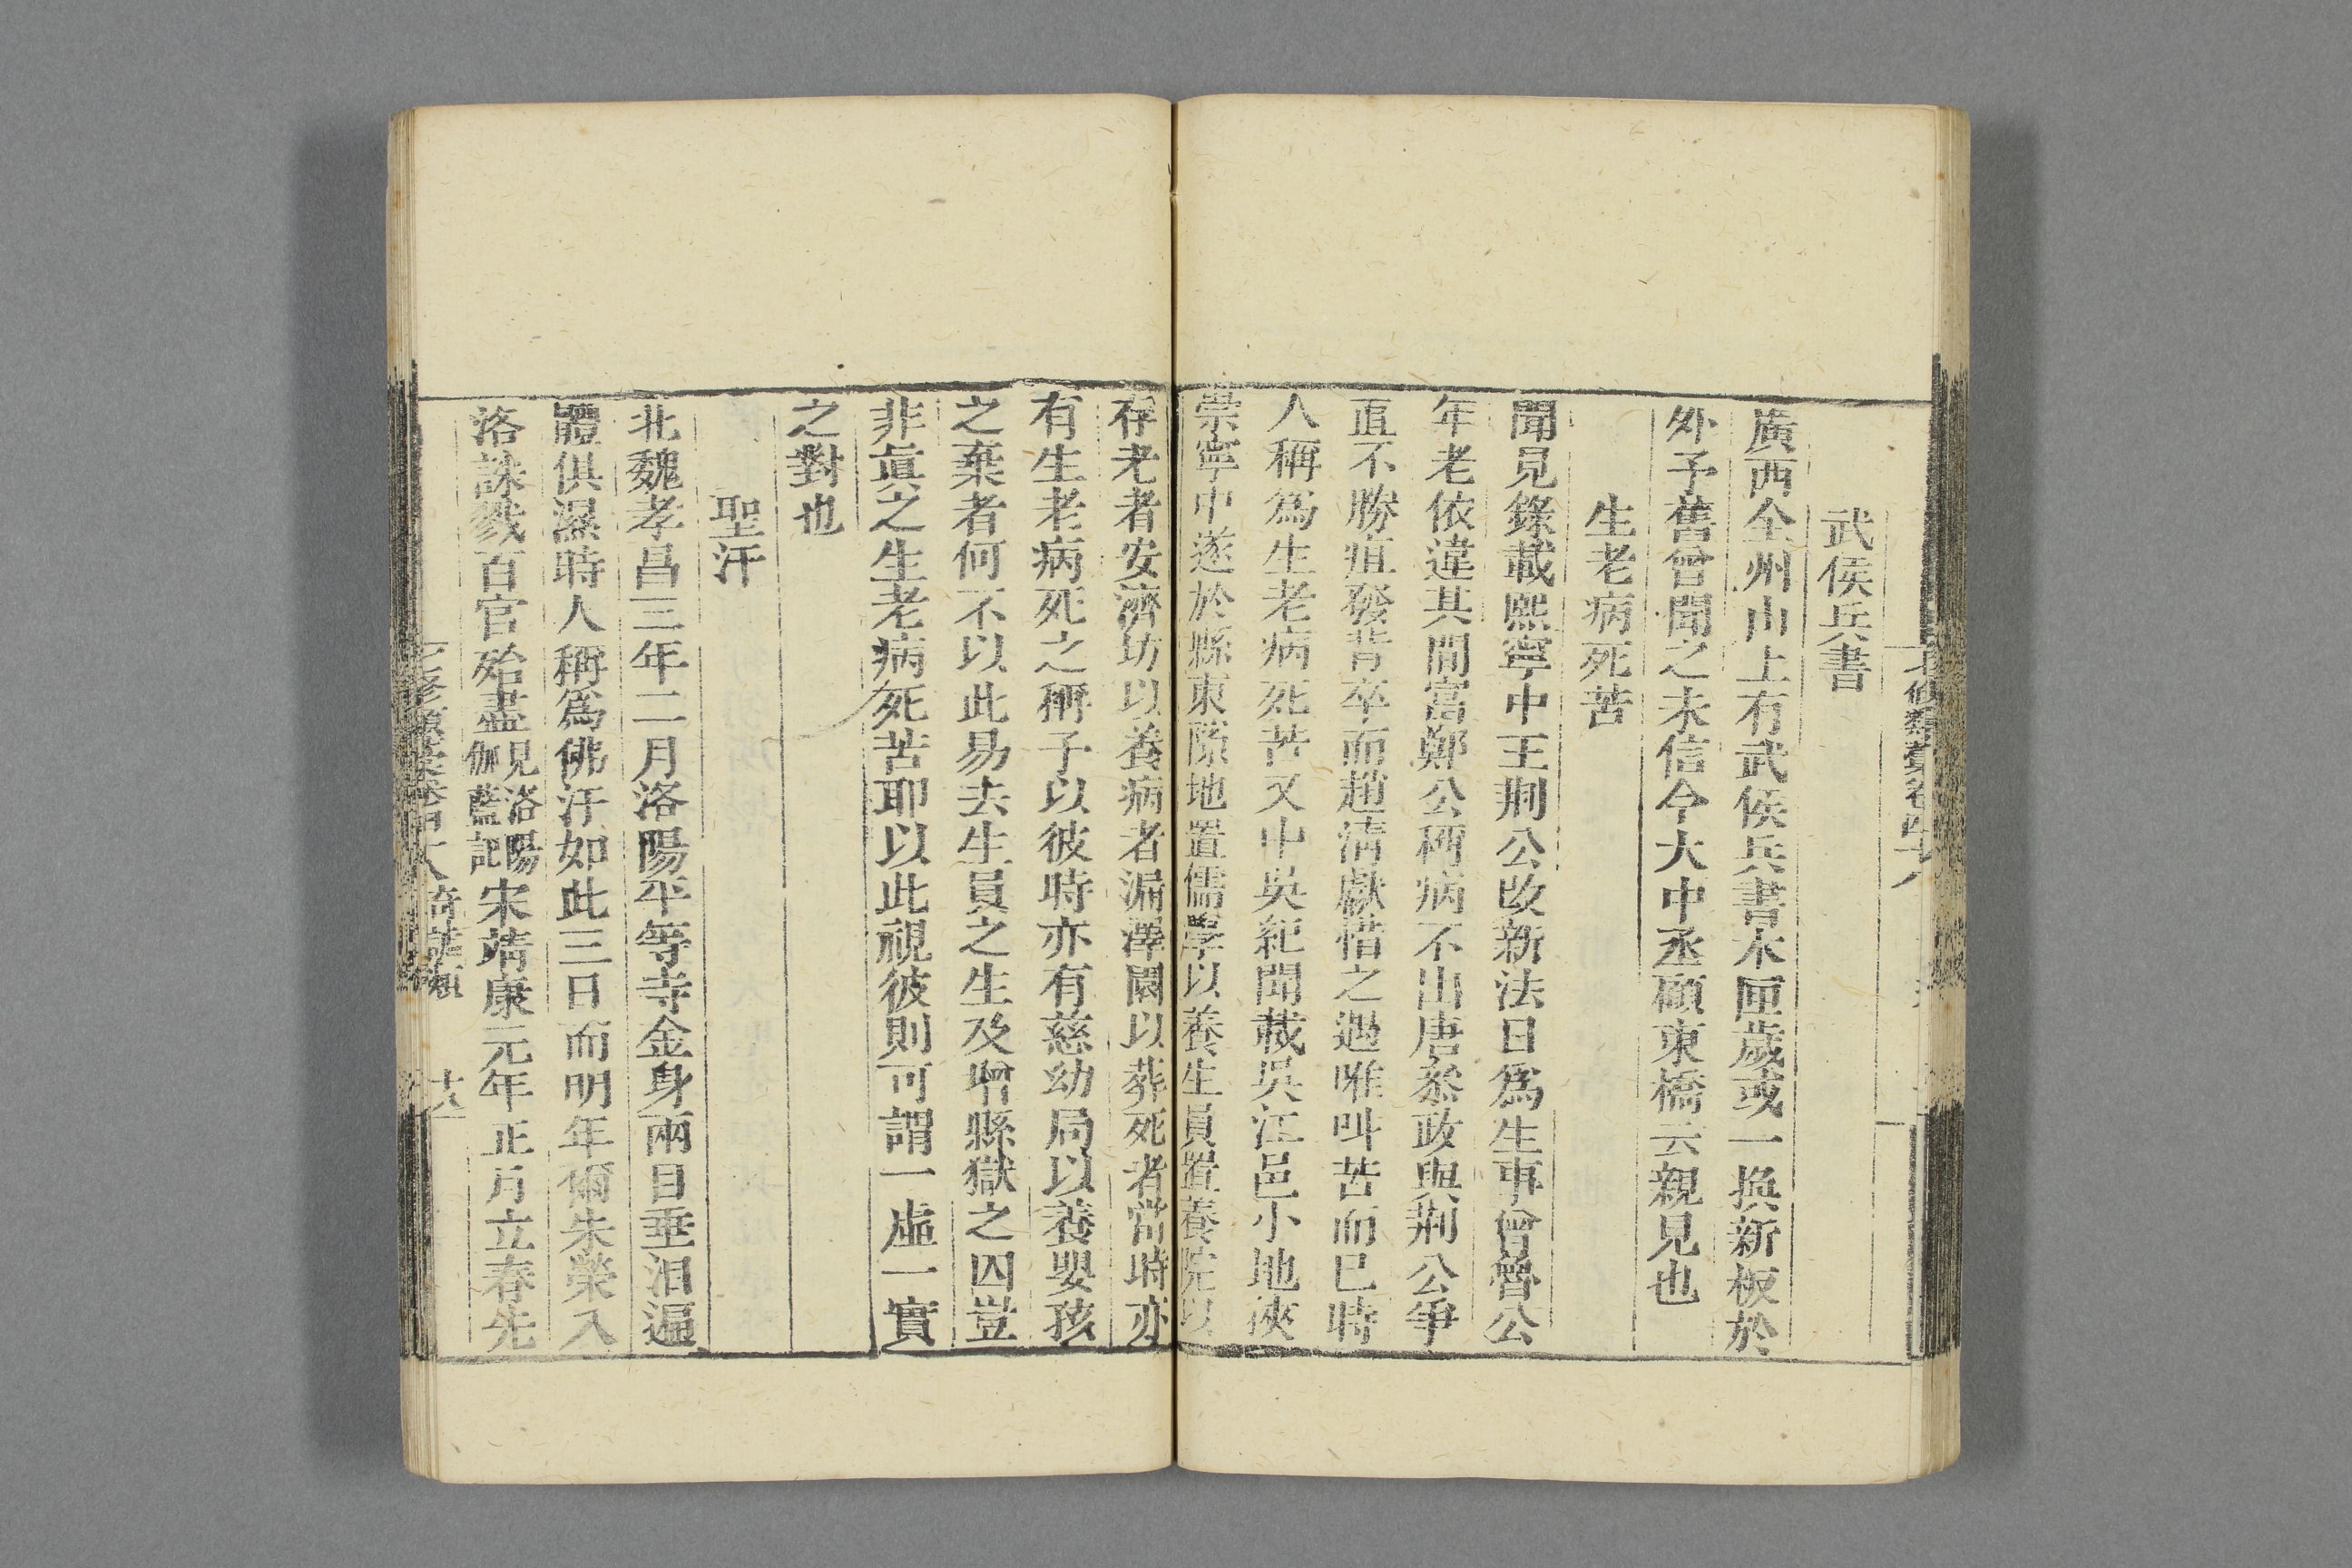 武侯兵書
廣西全州山上有武侯兵書木匣歲或一換新板於
外予舊曾聞之未信今大中丞顧東橋云親見也
生老病死苦
聞見錄載熙寧中王荆公改新法日爲生事曾魯公
年老依違其間富鄭公稱病不出唐叅政與荆公爭
直不勝疽發背卒而趙清獻惜之遇唯呌苦而已時
人稱爲生老病死苦又中吳紀聞載吳江邑小地狹
崇寧中遂於縣東隙地置儒學以養生員置養院以
存老者安濟坊以養病者漏澤園以葬死者當時亦
有生老病死之稱予以彼時亦有慈幼局以養嬰孩
之棄者何不以此易去生員之生及增縣獄之囚豈
非眞之生老病死苦耶以此視彼則可謂一虛一實
之對也
聖汗
北魏孝昌三年二月洛陽平等寺金身兩目垂泪遍
體俱濕時人稱爲佛汗如此三日而明年爾朱榮入
洛誅戮百官殆盡見洛陽伽藍記宋靖康元年正月立春先
奇謔類